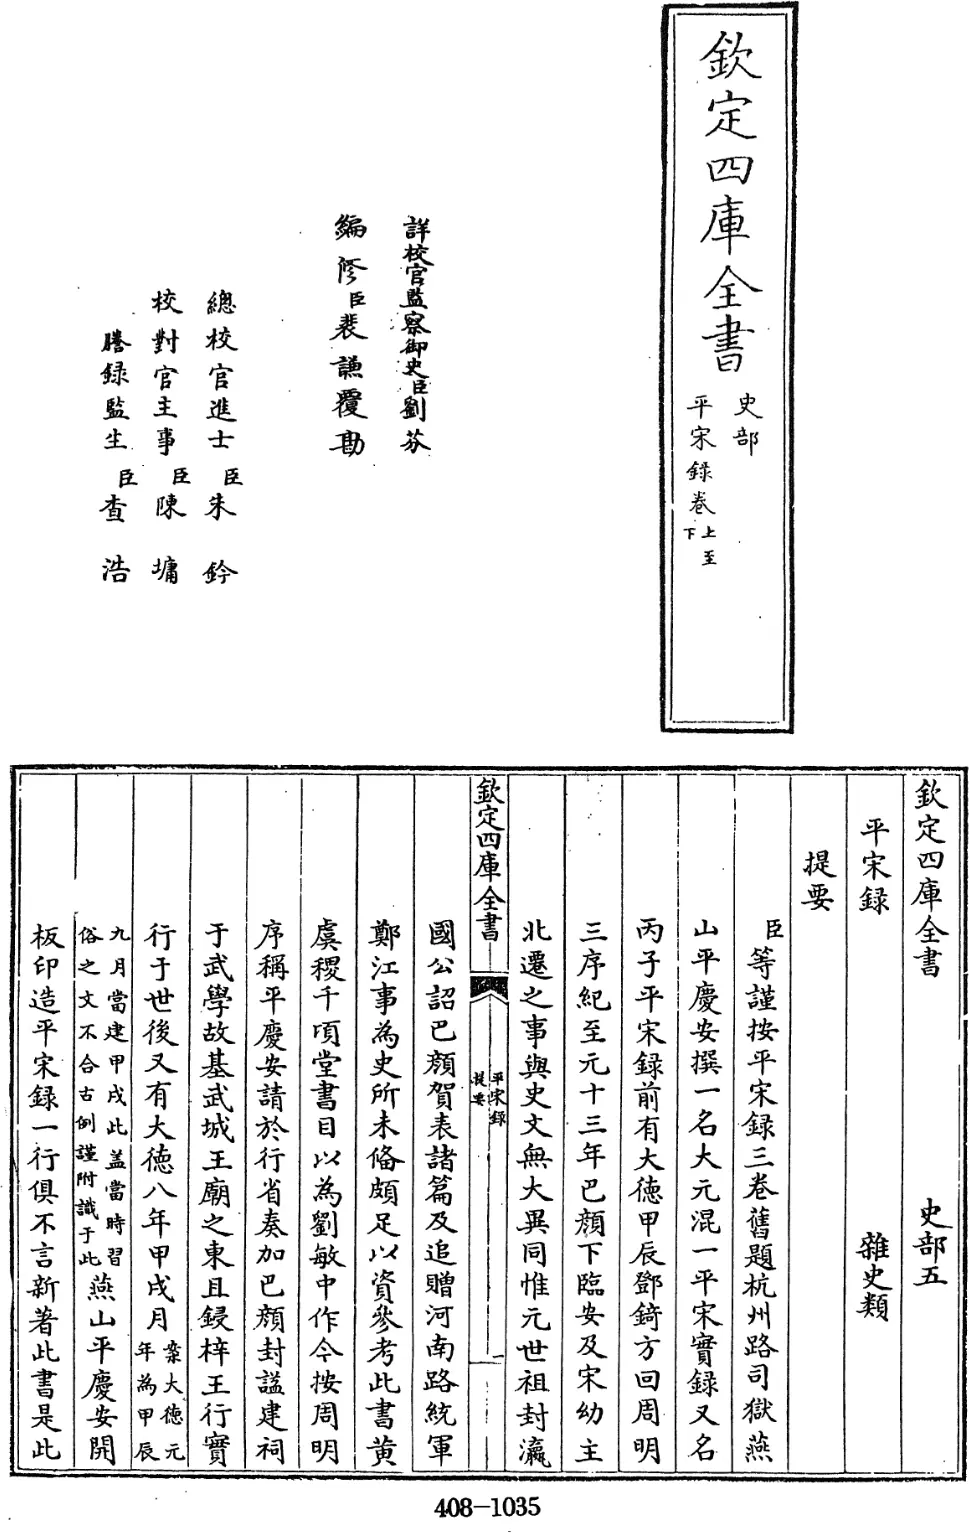 欽定四庫全書
史部
平宋錄卷上至下
詳校官監察御史臣劉芬
編修臣裴謙覆勘
總校官進士臣朱鈐
校對官主事臣陳墉
謄録監生臣查浩
欽定四庫全書 史部五
平宋録 雜史類
提要
臣等謹按平宋録三卷舊題杭州路司獄燕
山平慶安撰一名大元混一平宋實録又名
丙子平宋録前有大德甲辰鄧錡方回周明
三序紀至元十三年巴顔下臨安及宋幼主
北遷之事與史文無大異同惟元世祖封瀛
欽定四庫全書
平宋録
提要
一
國公詔巴顔賀表諸篇及追贈河南路統軍
鄭江事為史所未備頗足以資參考此書黄
虞稷千頃堂書目以為劉敏中作今按周明
序稱平慶安請於行省奏加巴顔封諡建祠
于武學故基武城王廟之東且鋟梓王行實
行于世後又有大德八年甲戌月案大德元年為甲辰
九月當建甲戌此盖當時習俗之文不合古例謹附識于此燕山平慶安開
板印造平宋録一行俱不言新著此書是此
408-1035